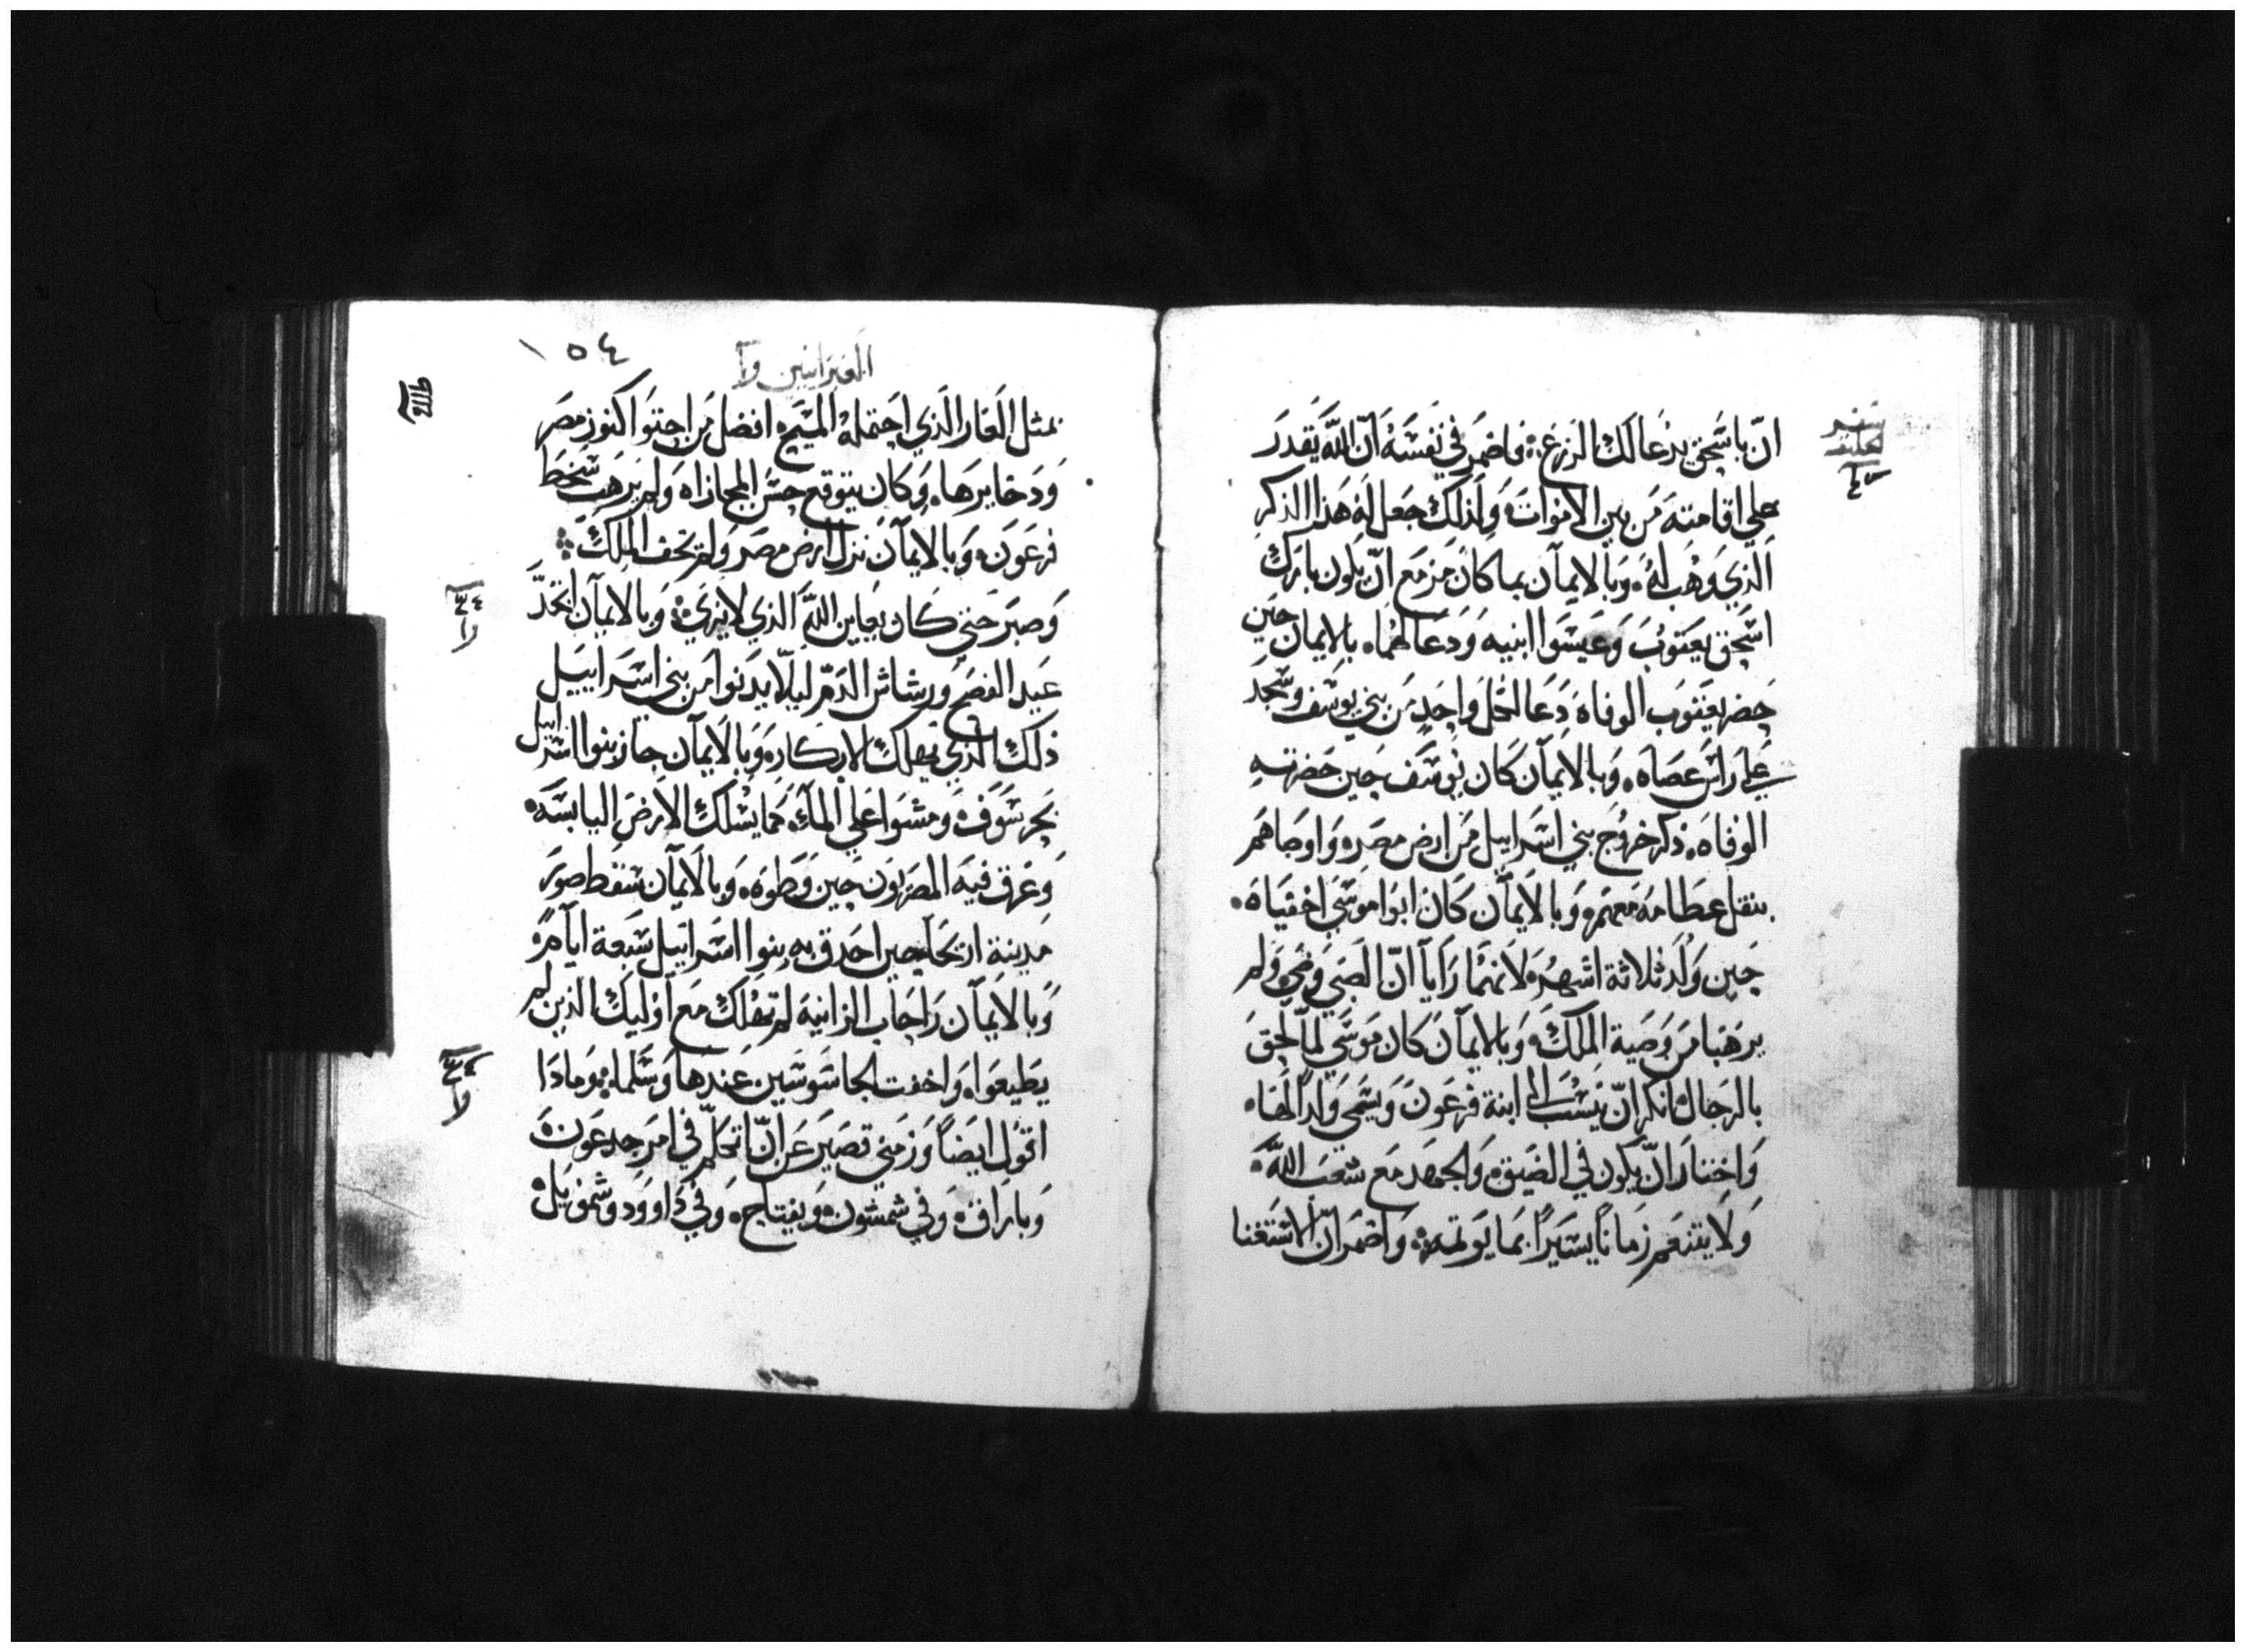 انّ باسحق يدعا لك الزرع. فاضمر في نفسه انّ الله يقدر
علي اقامته من بين الاموات ولذلك جعل له هذا الذكر
الذي وهب له. وبالايمآن بما كان مزمع انّ يكون بارك
اسحق يعقوب وعيسوا ابنيه ودعا لهما. بالايمان حين
حضر يعقوب الوفاه دعا لكل واحد من بني يوسف وسجد
علي راس عصاه. وبالايمآن كان يوسف حين حضرته
الوفاه. ذكر خروج بني اسراييل من ارض مصر. واوصاهم
بنقل عظامه معهم. وبالايمآن كان ابوا موسي اخفياه.
حين ولد ثلاثة اشهر. لانهما رايا انّ الصبي وضي. ولم
يرهبا من وصية الملك. وبالايمآن كان موسي لمّا لحق
بالرجال. انكر انّ ينسب الي ابنة فرعون ويسمي ولداً لها.
واختار انّ يكون في الضيق. والجهد مع شعب الله.
ولا يتنعم زماناً يسيراً بما يوتمه. واضمر انّ الاستغنا
١٥٤
العبرانيين
بمثل العار الذي احتمله المسيح. افضل من احتوا كنوز مصر
ودخايرها. وكان يتوقع حسن المجازاه ولم يرهب سخط
فرعون. وبالايمآن نزل ارض مصر ولم تخف الملك.
وصبر حتي كان يعاين الله الذي لا يري. وبالايمآن اتخذ
عيد الفصح ورشاش الدم ليلّا يدنوا من بني اسراييل
ذلك الذي يهلك الابكار. وبالايمآن جاز بنوا اسراييل
بحر سوف. ومشوا علي المآء كما يسلك الارض اليابسه.
وغرق فيه المصريون حين وطوه. وبالايمآن سقط صور
مدينة اريحا حين احدق به بنوا اسراييل سبعة ايآم.
وبالايمآن راحاب الزانية لم تهلك مع اوليك الذين لم
يطيعوا. واخفت الجاسوسين عندها وسلما. وماذا
اقول ايضاً وزمني قصير عن انّ اتكلم في امر جدعون.
وباراق. وفي شمشون. ويفتاح. وفي داوود وشموييل.